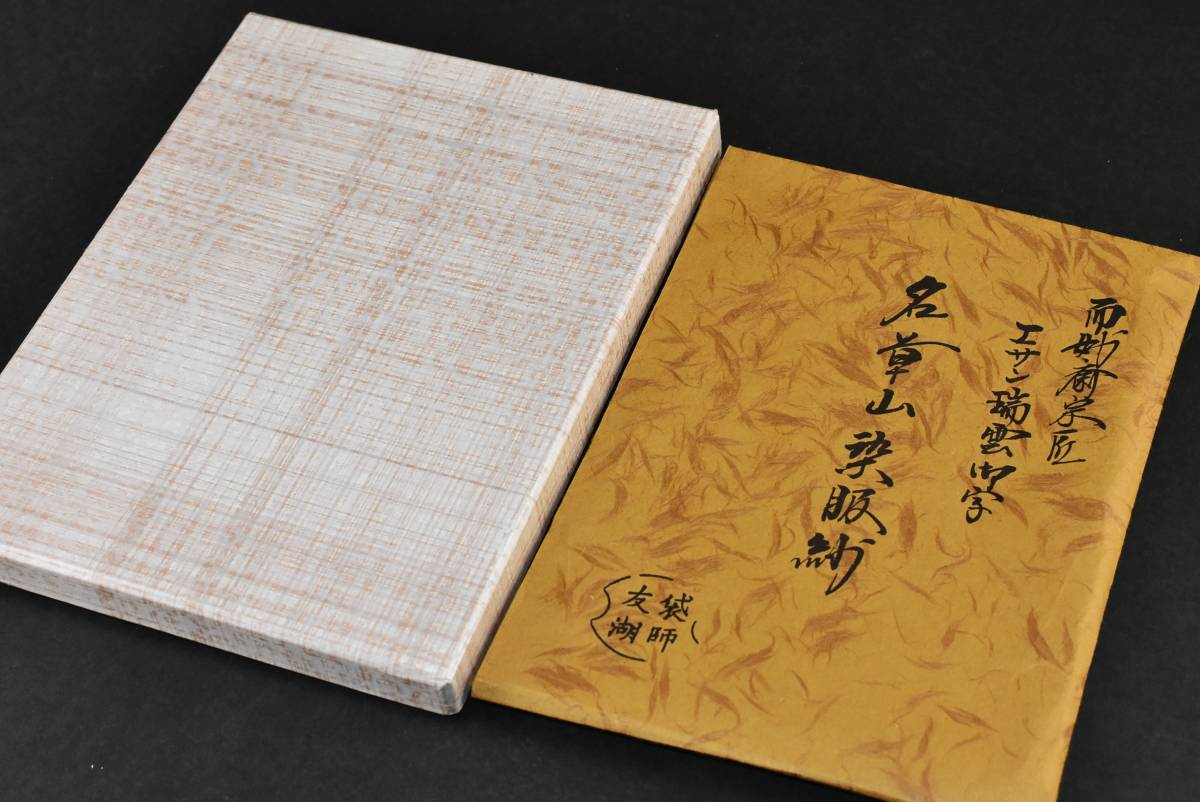 而妙斎宗匠
エサシ瑞雲御字
名草山染服紗
袋師
友湖